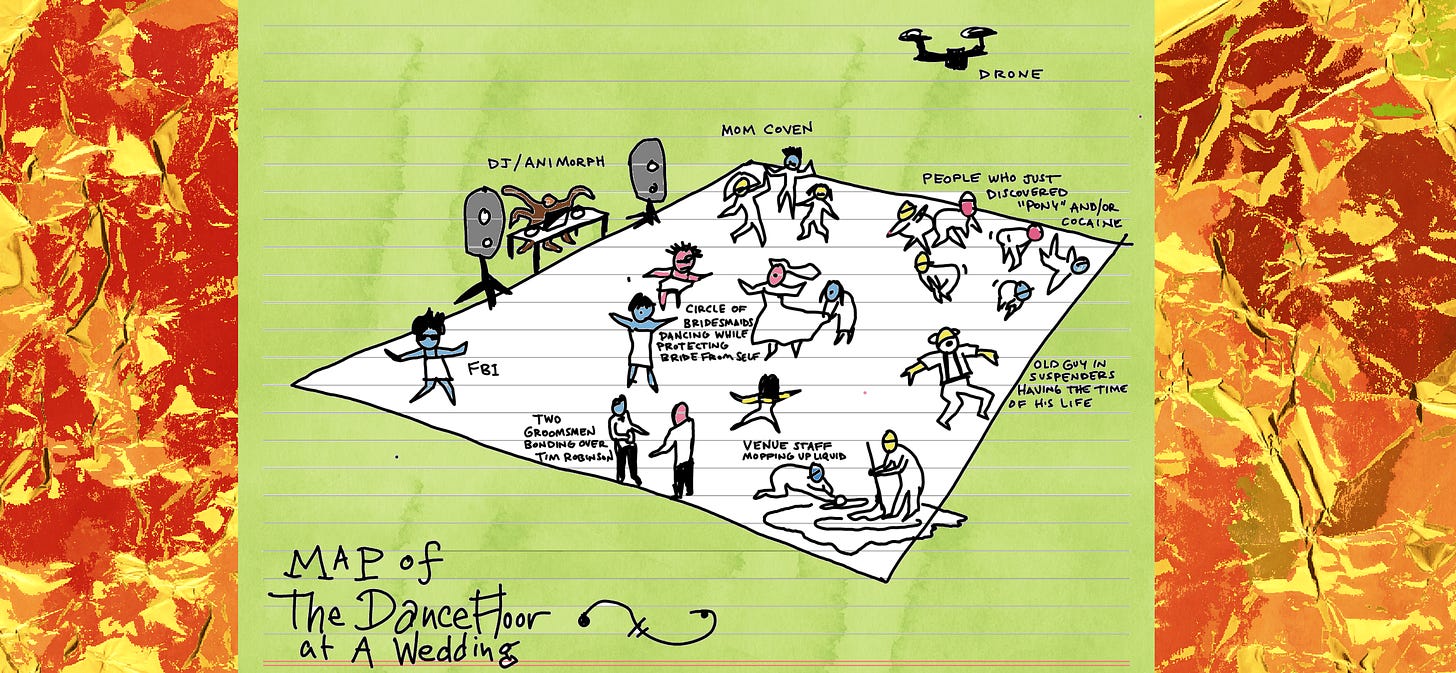 DRONE
MOM COVEN
DJ/ANIMORPH
PEOPLE WHO JUST
DISCOVERED
"PONY" AND/OR
COCAINE
CIRCLE OF
BRIDESMAIDS
DANCING WHILE
PROTECTING
BRIDE FROM SELF
FBI
OLD GUY IN
SUSPENDERS
HAVING THE TIME
OF HIS LIFE
TWO
GROOMSMEN
BONDING OVER
TIM ROBINSON
VENUE STAFF
MOPPING UP LIQUID
MAP of
The Dancefloor
at A Wedding